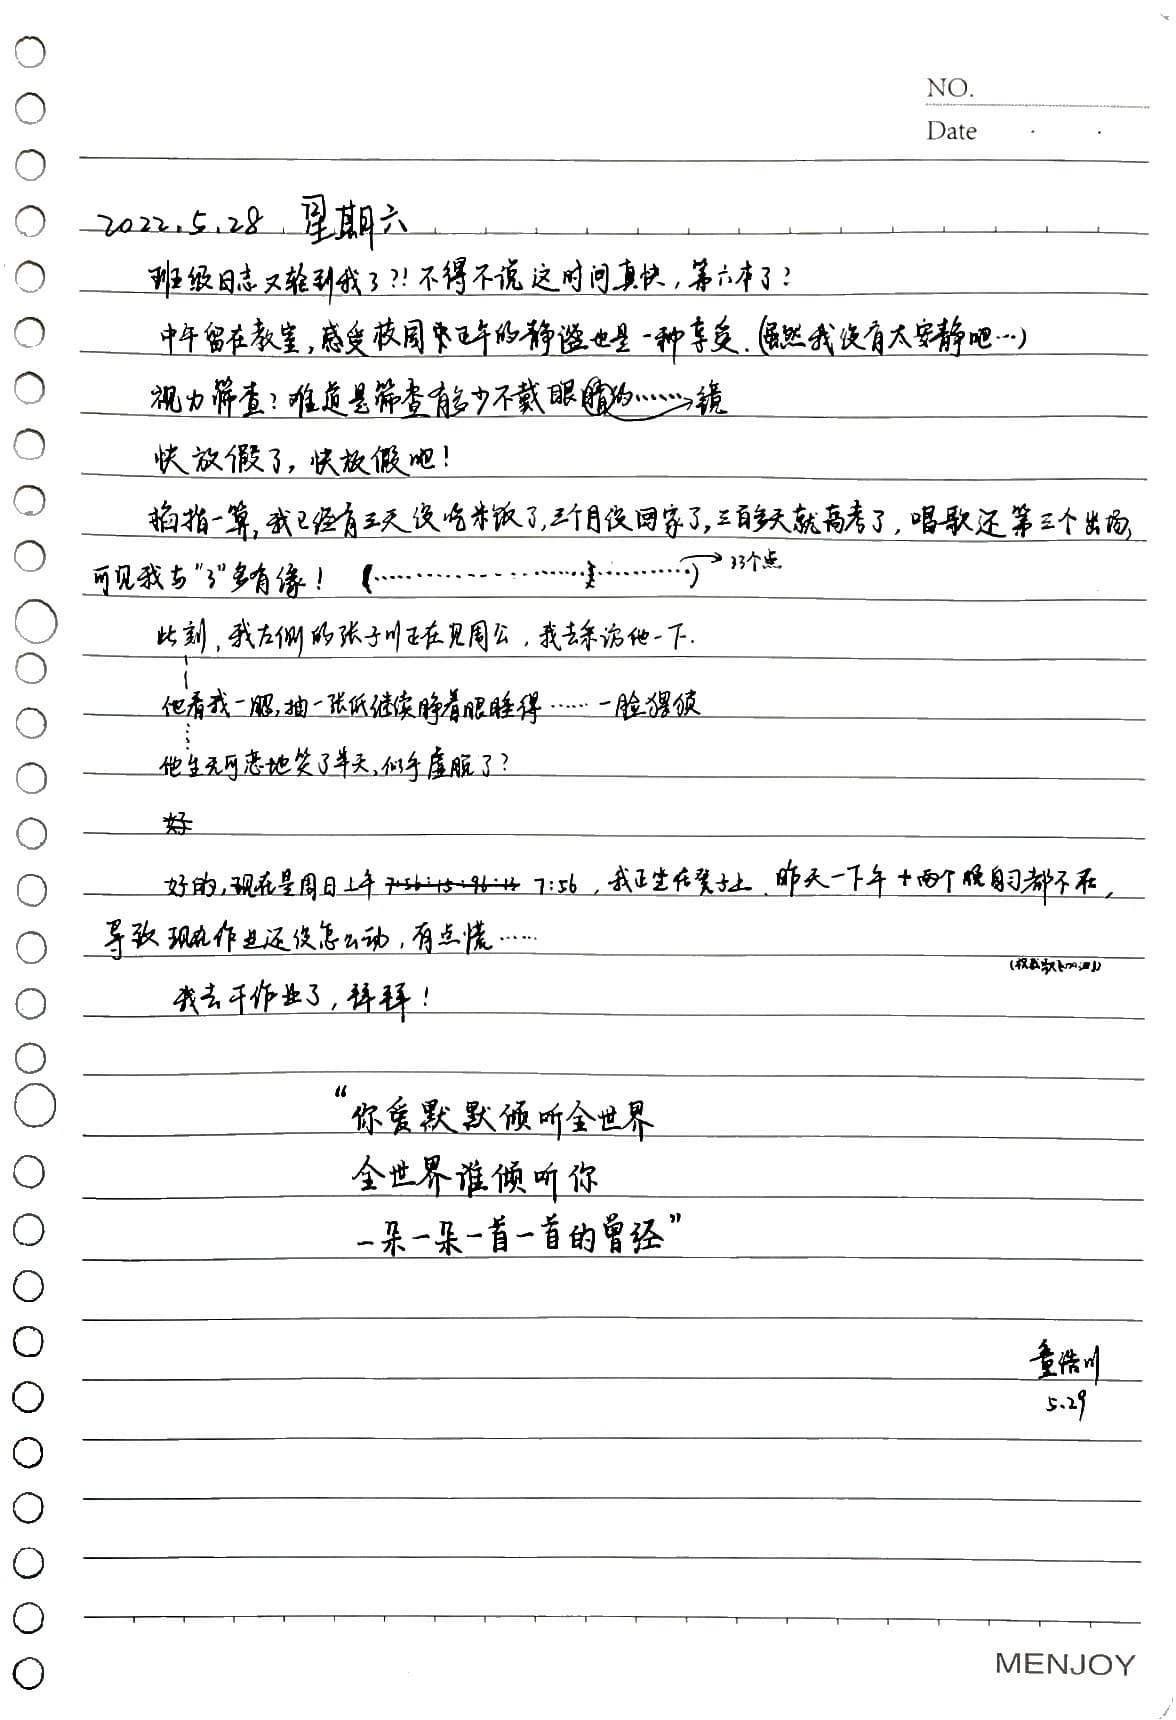 NO.
Date
2022.5.28 星期六
班级日志又轮到我了?! 不得不说这时间真快,第六本了?
中午留在教室,感受校园正午的静谧也是一种享受.(虽然我没有太安静吧…)
视力筛查?难道是筛查有多少不戴眼睛的……镜
快放假了,快放假吧!
掐指一算,我已经有三天没吃米饭了,三个月没回家了,三百多天就高考了,唱歌还第三个出场,
可见我与"3"多有缘! (……………………………) 33个点
此刻,我左侧的张子川正在见周公,我去采访他一下.
他看我一眼,抽一张纸继续睁着眼睡得……一脸猥琐
他生无可恋地笑了半天,似乎虚脱了?
好
好的,现在是周日上午 7:56:15:96:13 7:56,我正坐在凳子上.昨天一下午+两个晚自习都不在,
导致现在作业还没怎么动,有点慌……
我去干作业了,拜拜!
"你爱默默倾听全世界
全世界谁倾听你
一朵一朵一首一首的曾经"
童浩川
5.29
MENJOY